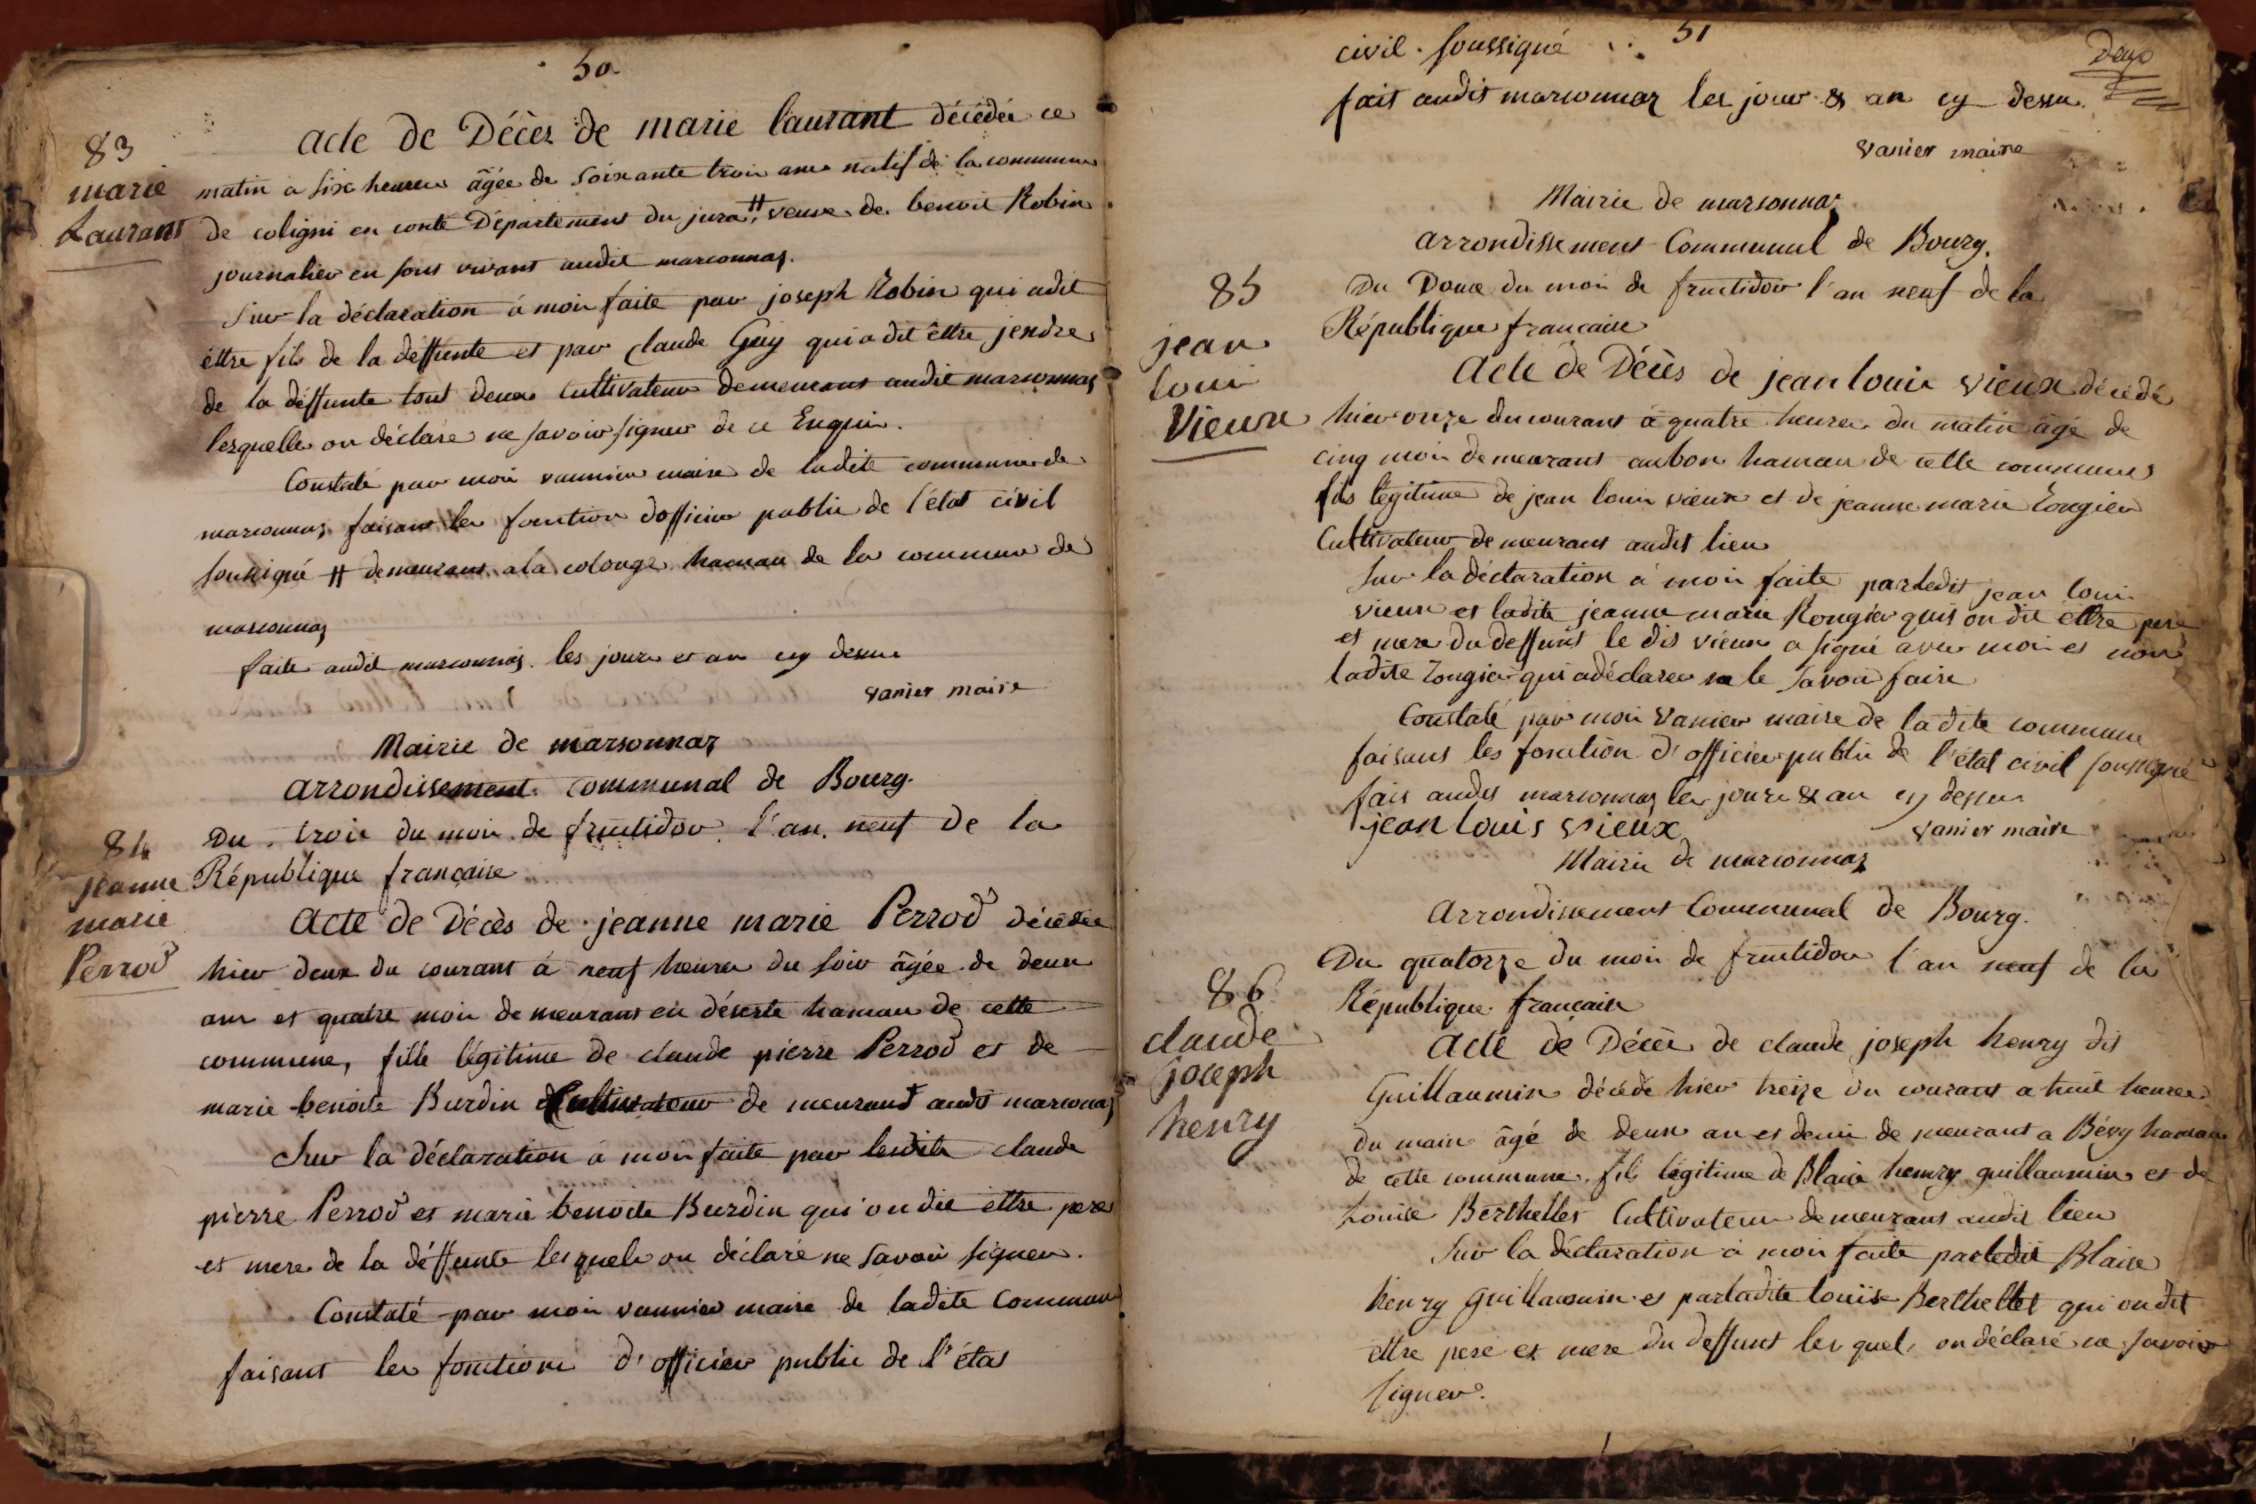 50
83
marie
Laurant
acte de Décès de marie laurant décédée ce
matin a six heures âgée de soixante trois ans natif de la commune
de coligni en conté Département du jura # veuve de benoit Robin
journalier en sont vivant audit marsonnaz.
Sur la déclaration a moi faite par joseph Robin qui adit
éttre fils de la déffunte et par claude Guy qui a dit êttre jendre
de la déffunte tout deux Cultivateur demeurant audit marsonnaz
lesquelle on déclaré ne savoir signer de ce Enquis.
Constaté par moi vannier maire de ladite commune de
marsonnaz faisant les fonction dofficier public de l'état civil
soussigné # demeurant a la colonge hameau de la commune de
marsonnaz
faite audit marsonnaz les jours et an cy dessus
vanier maire
Mairie de marsonnaz
arrondissement communal de Bourg.
84
jeanne
marie
Perrod
Du trois du mois de fructidor l'an neuf de la
République française
acte de Décès de jeanne marie Perrod décédée
hier deux du courant á neuf heures du soir âgée de deux
ans et quatre mois demeurant en déserte hamau de cette
commune, fille légitime de claude pierre Perrod et de
marie benoite Burdin Cultivateur de meurant audit marsonnaz
Sur la déclaration á moi faite par lesdits claude
pierre Perrod et marie benoite Burdin qui on dit ettre pere
et mere de la déffunte lesquels on déclaré ne savoir signer.
Constaté par moi vannier maire de ladite commune
faisant les fonctions d'officier public de l'état
51
Deux
civil soussigné
fait audit marsonnaz les jour & an cy dessu
vanier maire
Mairie de marsonnaz
arrondissement Communal de Bourg.
85
jean
loui
Vieux
Du Douze du mois de fructidor l'an neuf de la
République française
acte de Décès de jean louis vieux décédé
hier onze du courant á quatre heures du matin âgé de
cinq mois demeurant aubon hamau de cette commune
fils légitime de jean louis vieux et de jeanne marie Rongier
Cultivateur demeurant audit lieu
Sur la déclaration á moi faite par ledit jean louis
vieux et ladite jeanne marie Rongier quis on dit ettre pere
et mere du deffunt le dis vieux a signé avec moi et non
ladite rongier qui a déclarer ne le savoir faire
Constaté par moi vanier maire de ladite commune
faisant les fonction d'officier public de l'état civil soussigné
fait audit marsonnaz les jours & an cy dessus
jean louis vieux vanier maire
Mairie de marsonnaz
arrondissement Communal de Bourg.
86
claude
joseph
henry
Du quatorze du mois de fructidor l'an neuf de la
République française
acte de Décès de claude joseph henry dit
Guillaumin décédé hier treize du courant a huit heures
du matin âgé de deux an et demi demeurant a Bévy hamau
de cette commune, fils légitime de Blaise henry guillaumin et de
Louise Berthellet Cultivateur demeurant audit lieu
Sur la déclaration á moi faite par ledit Blaise
henry guillaumin et par ladite louise Berthellet qui on dit
ettre pere et mere du deffunt les quel, on déclaré ne savoir
signer.